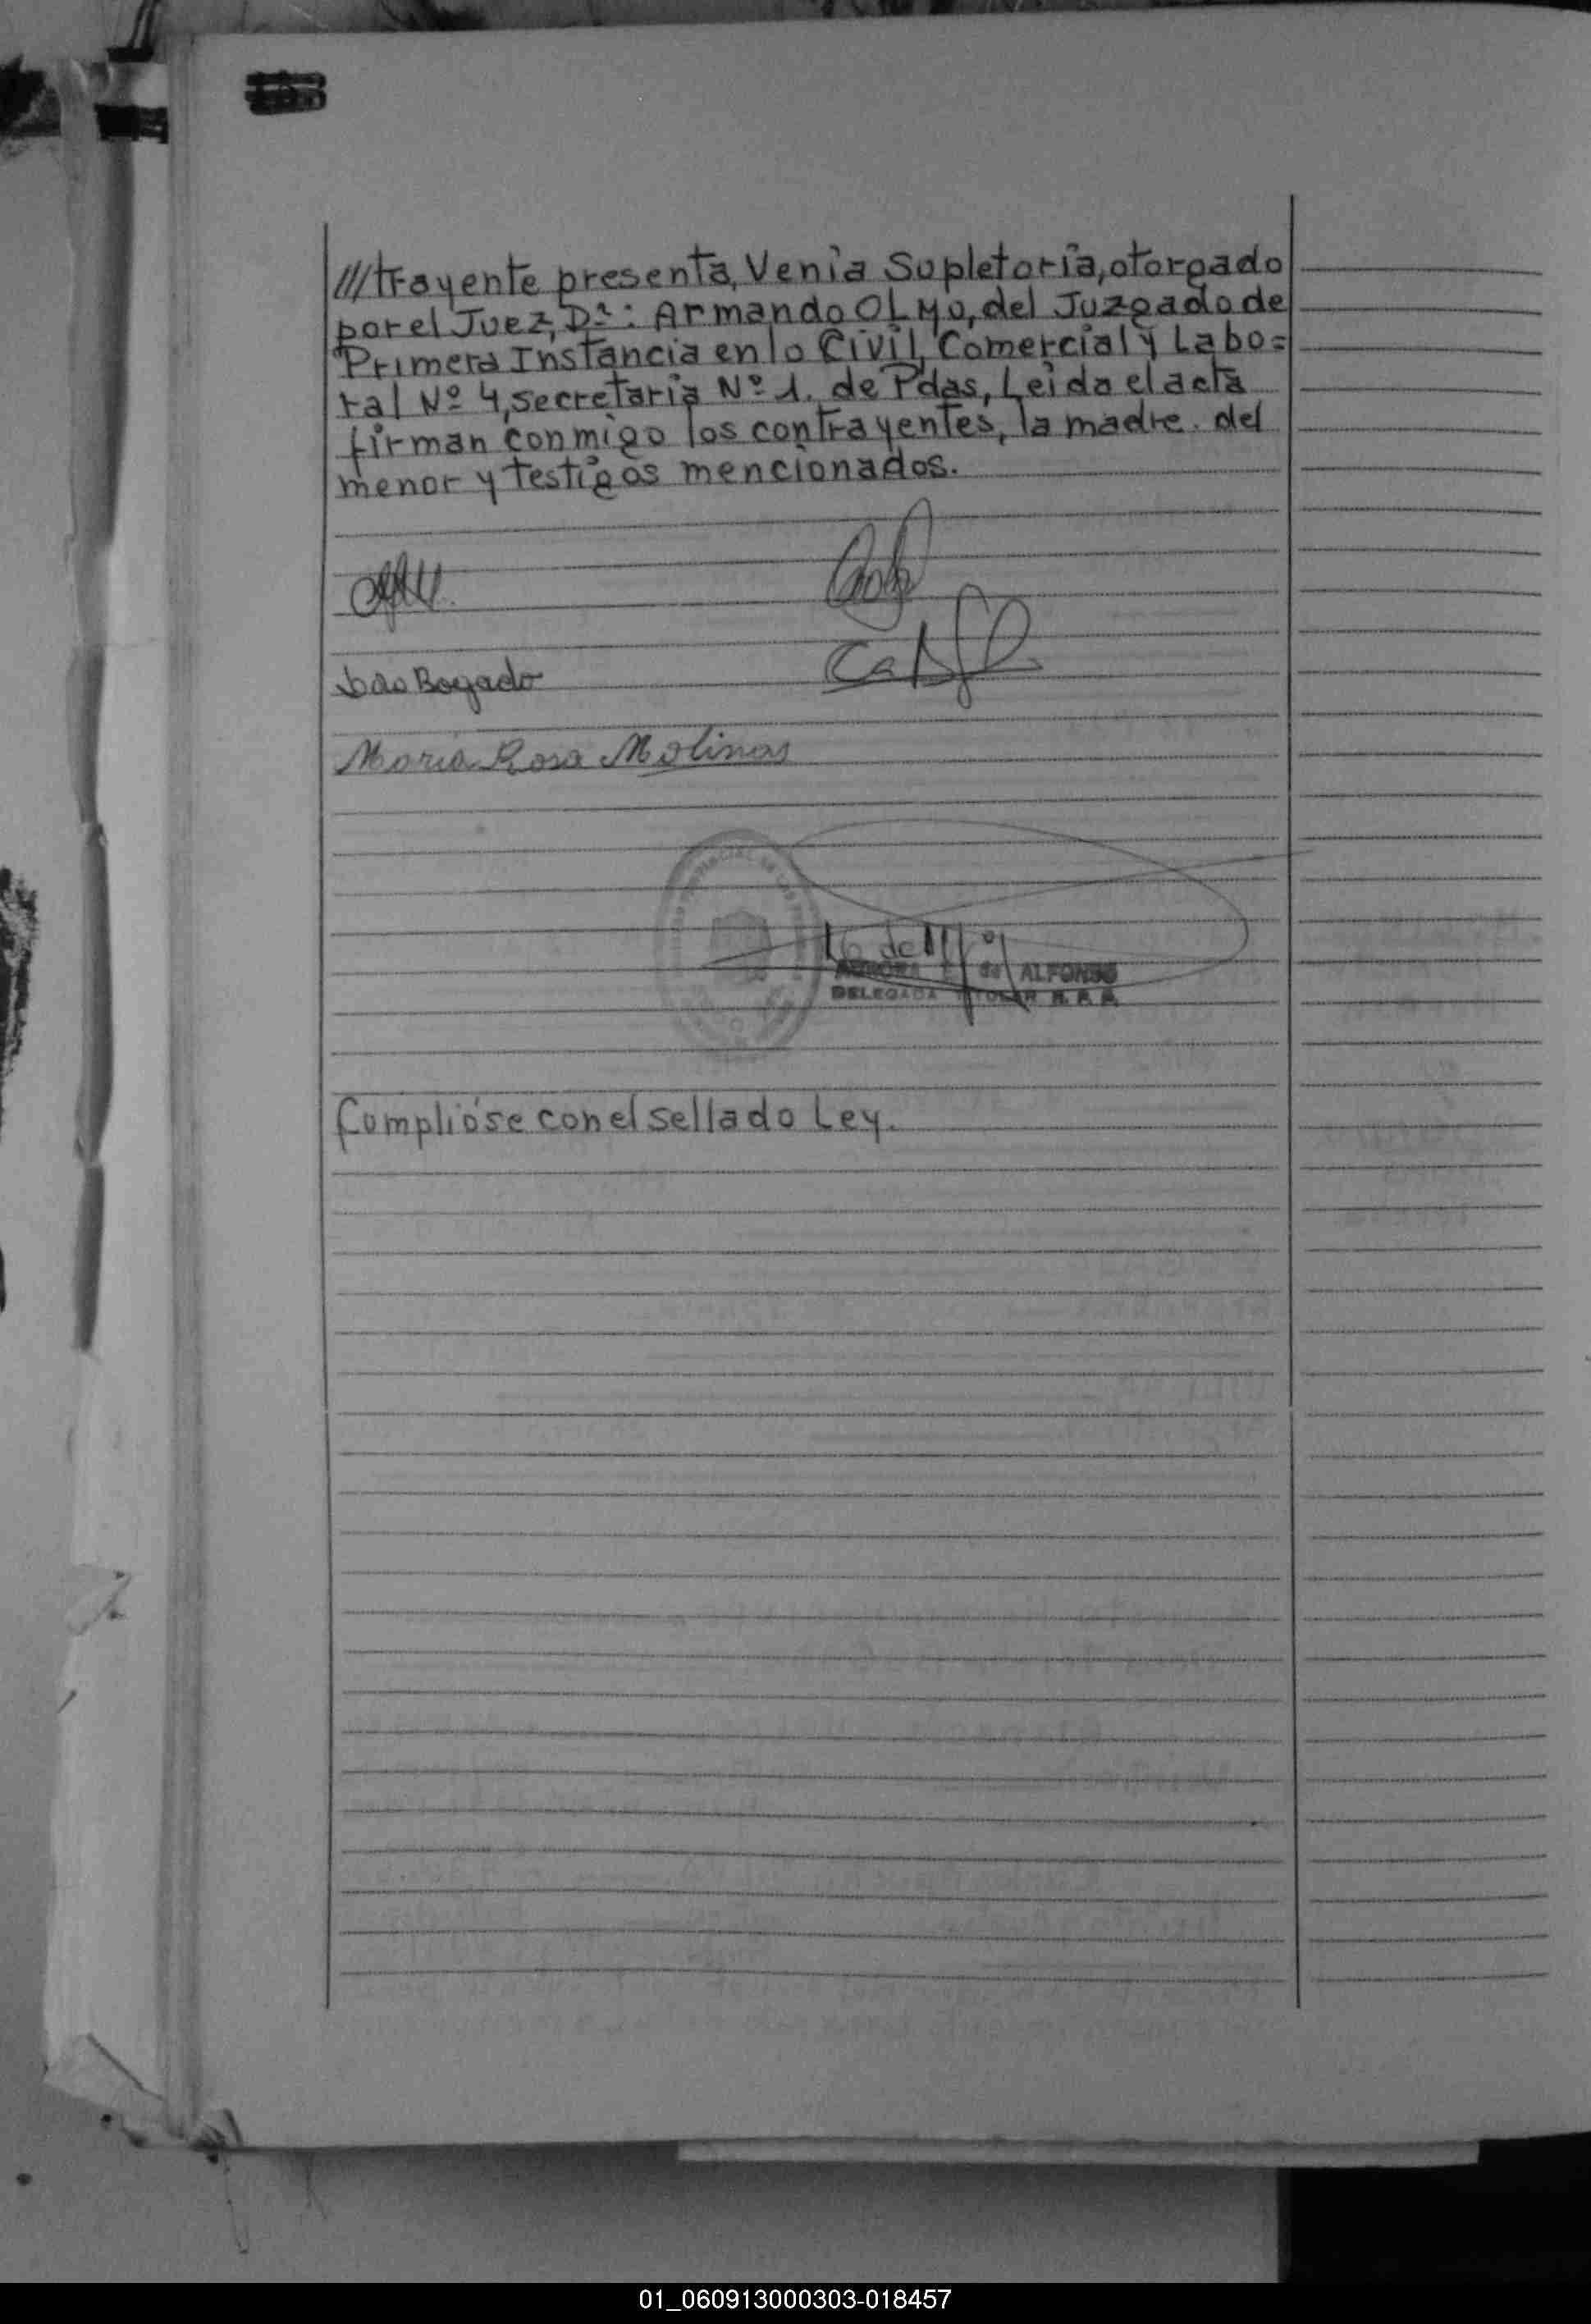 ///trayente presenta, Venia Supletoria, otorgado
por el Juez, Dr: Armando OLMO, del Juzgado de
Primera Instancia en lo Civil, Comercial y Labo=
ral Nº 4, secretaria Nº 1. de Pdas, Leida el acta
firman conmigo los contrayentes, la madre del
menor y testigos mencionados.
Bogado
Maria Rosa Molinas
de ALFONSO
DELEGADA TITULAR
Cumplióse con el sellado Ley.
01_060913000303-018457